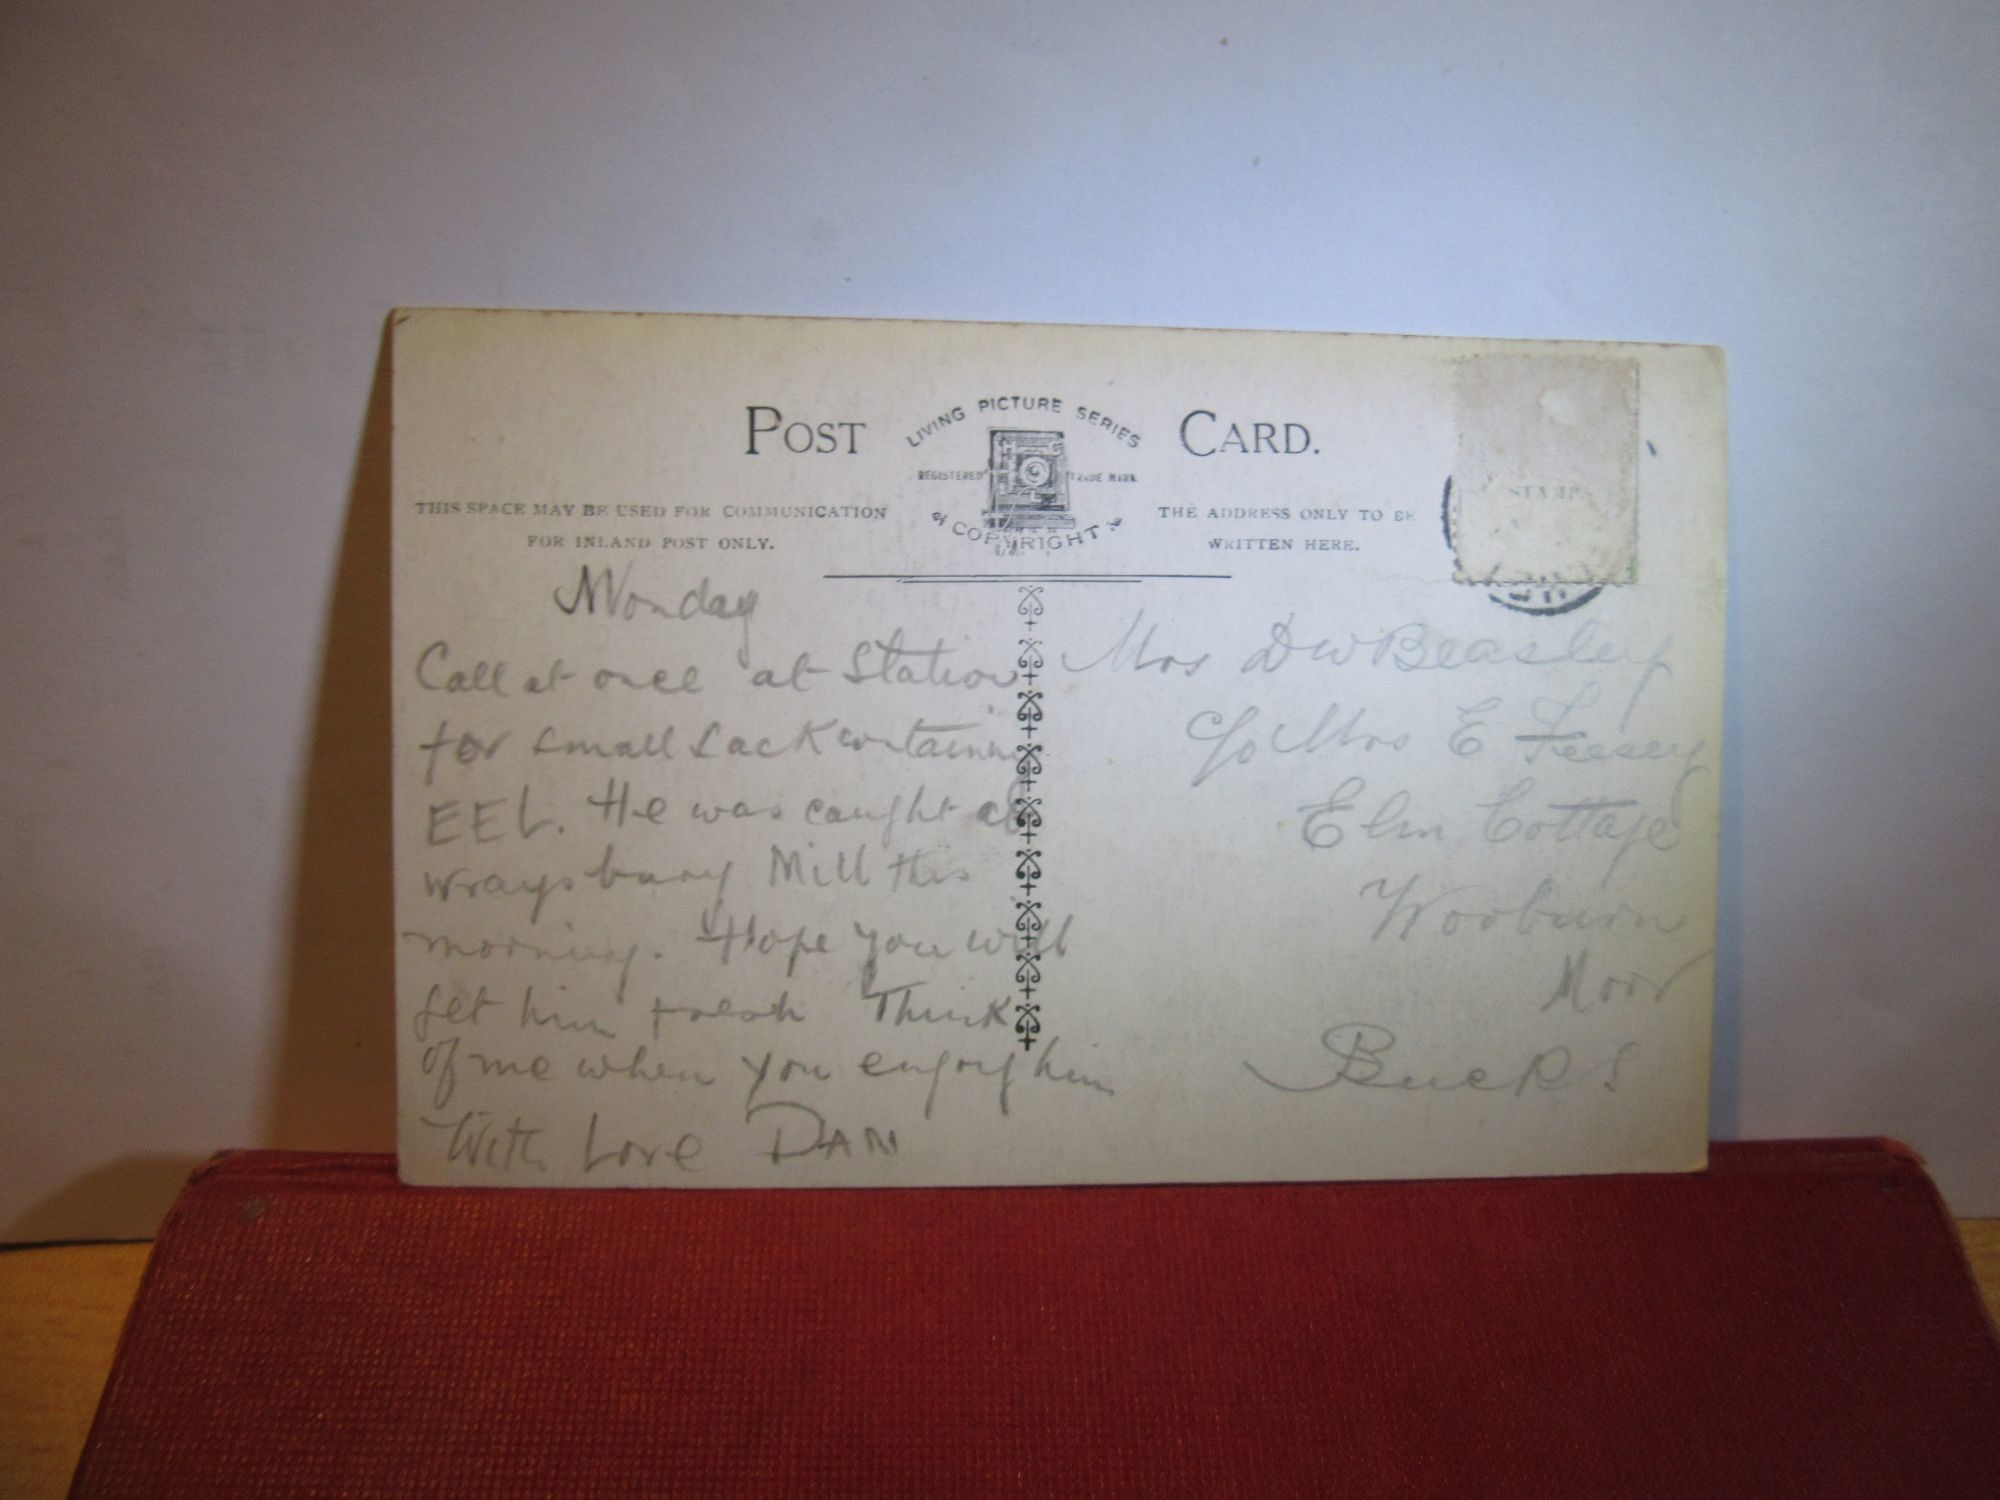 POST CARD.
LIVING PICTURE SERIES
REGISTERED TRADE MARK
COPYRIGHT
THIS SPACE MAY BE USED FOR COMMUNICATION
FOR INLAND POST ONLY.
THE ADDRESS ONLY TO BE
WRITTEN HERE.
STAMP
Monday
Call at once at Station
for small sack containing
EEL. He was caught at
Wraysbury Mill this
morning. Hope you will
get him fresh Think
of me when you enjoy him
With Love DAN
Mrs D W Beasley
c/o Mrs E Feesey
Elm Cottage
Wooburn
Moor
Bucks